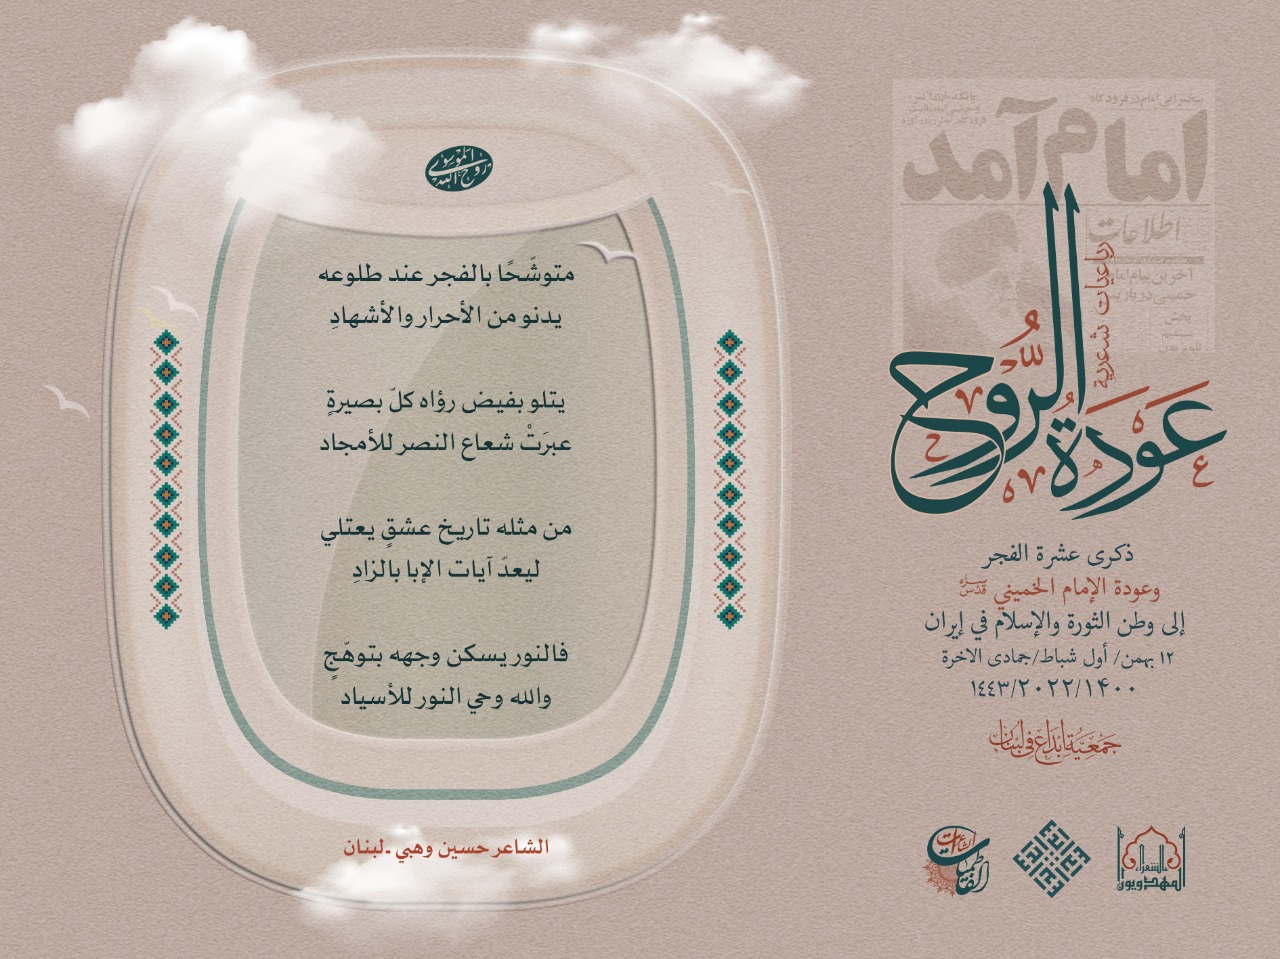 سخنرانی امام در فرودگاه
امام آمد
اطلاعات
آخرین پیام امام
رباعيات شعرية
عودة الرّوح
ذكرى عشرة الفجر
وعودة الإمام الخميني قدّس سرّه
إلى وطن الثورة والإسلام في إيران
١٢ بهمن/ أول شباط/جمادى الآخرة
١۴٠٠/٢٠٢٢/١٤٤٣
جمعيّة إبداع في لبنان
الشعراء
المهدويون
الشاعرات
الفاطميات
روح الله الموسوي
متوشّحًا بالفجر عند طلوعه
يدنو من الأحرار والأشهادِ
يتلو بفيض رؤاه كلّ بصيرةٍ
عبرَتْ شعاع النصر للأمجاد
من مثله تاريخ عشقٍ يعتلي
ليعدّ آيات الإبا بالزادِ
فالنور يسكن وجهه بتوهّجٍ
والله وحي النور للأسياد
الشاعر حسين وهبي -لبنان